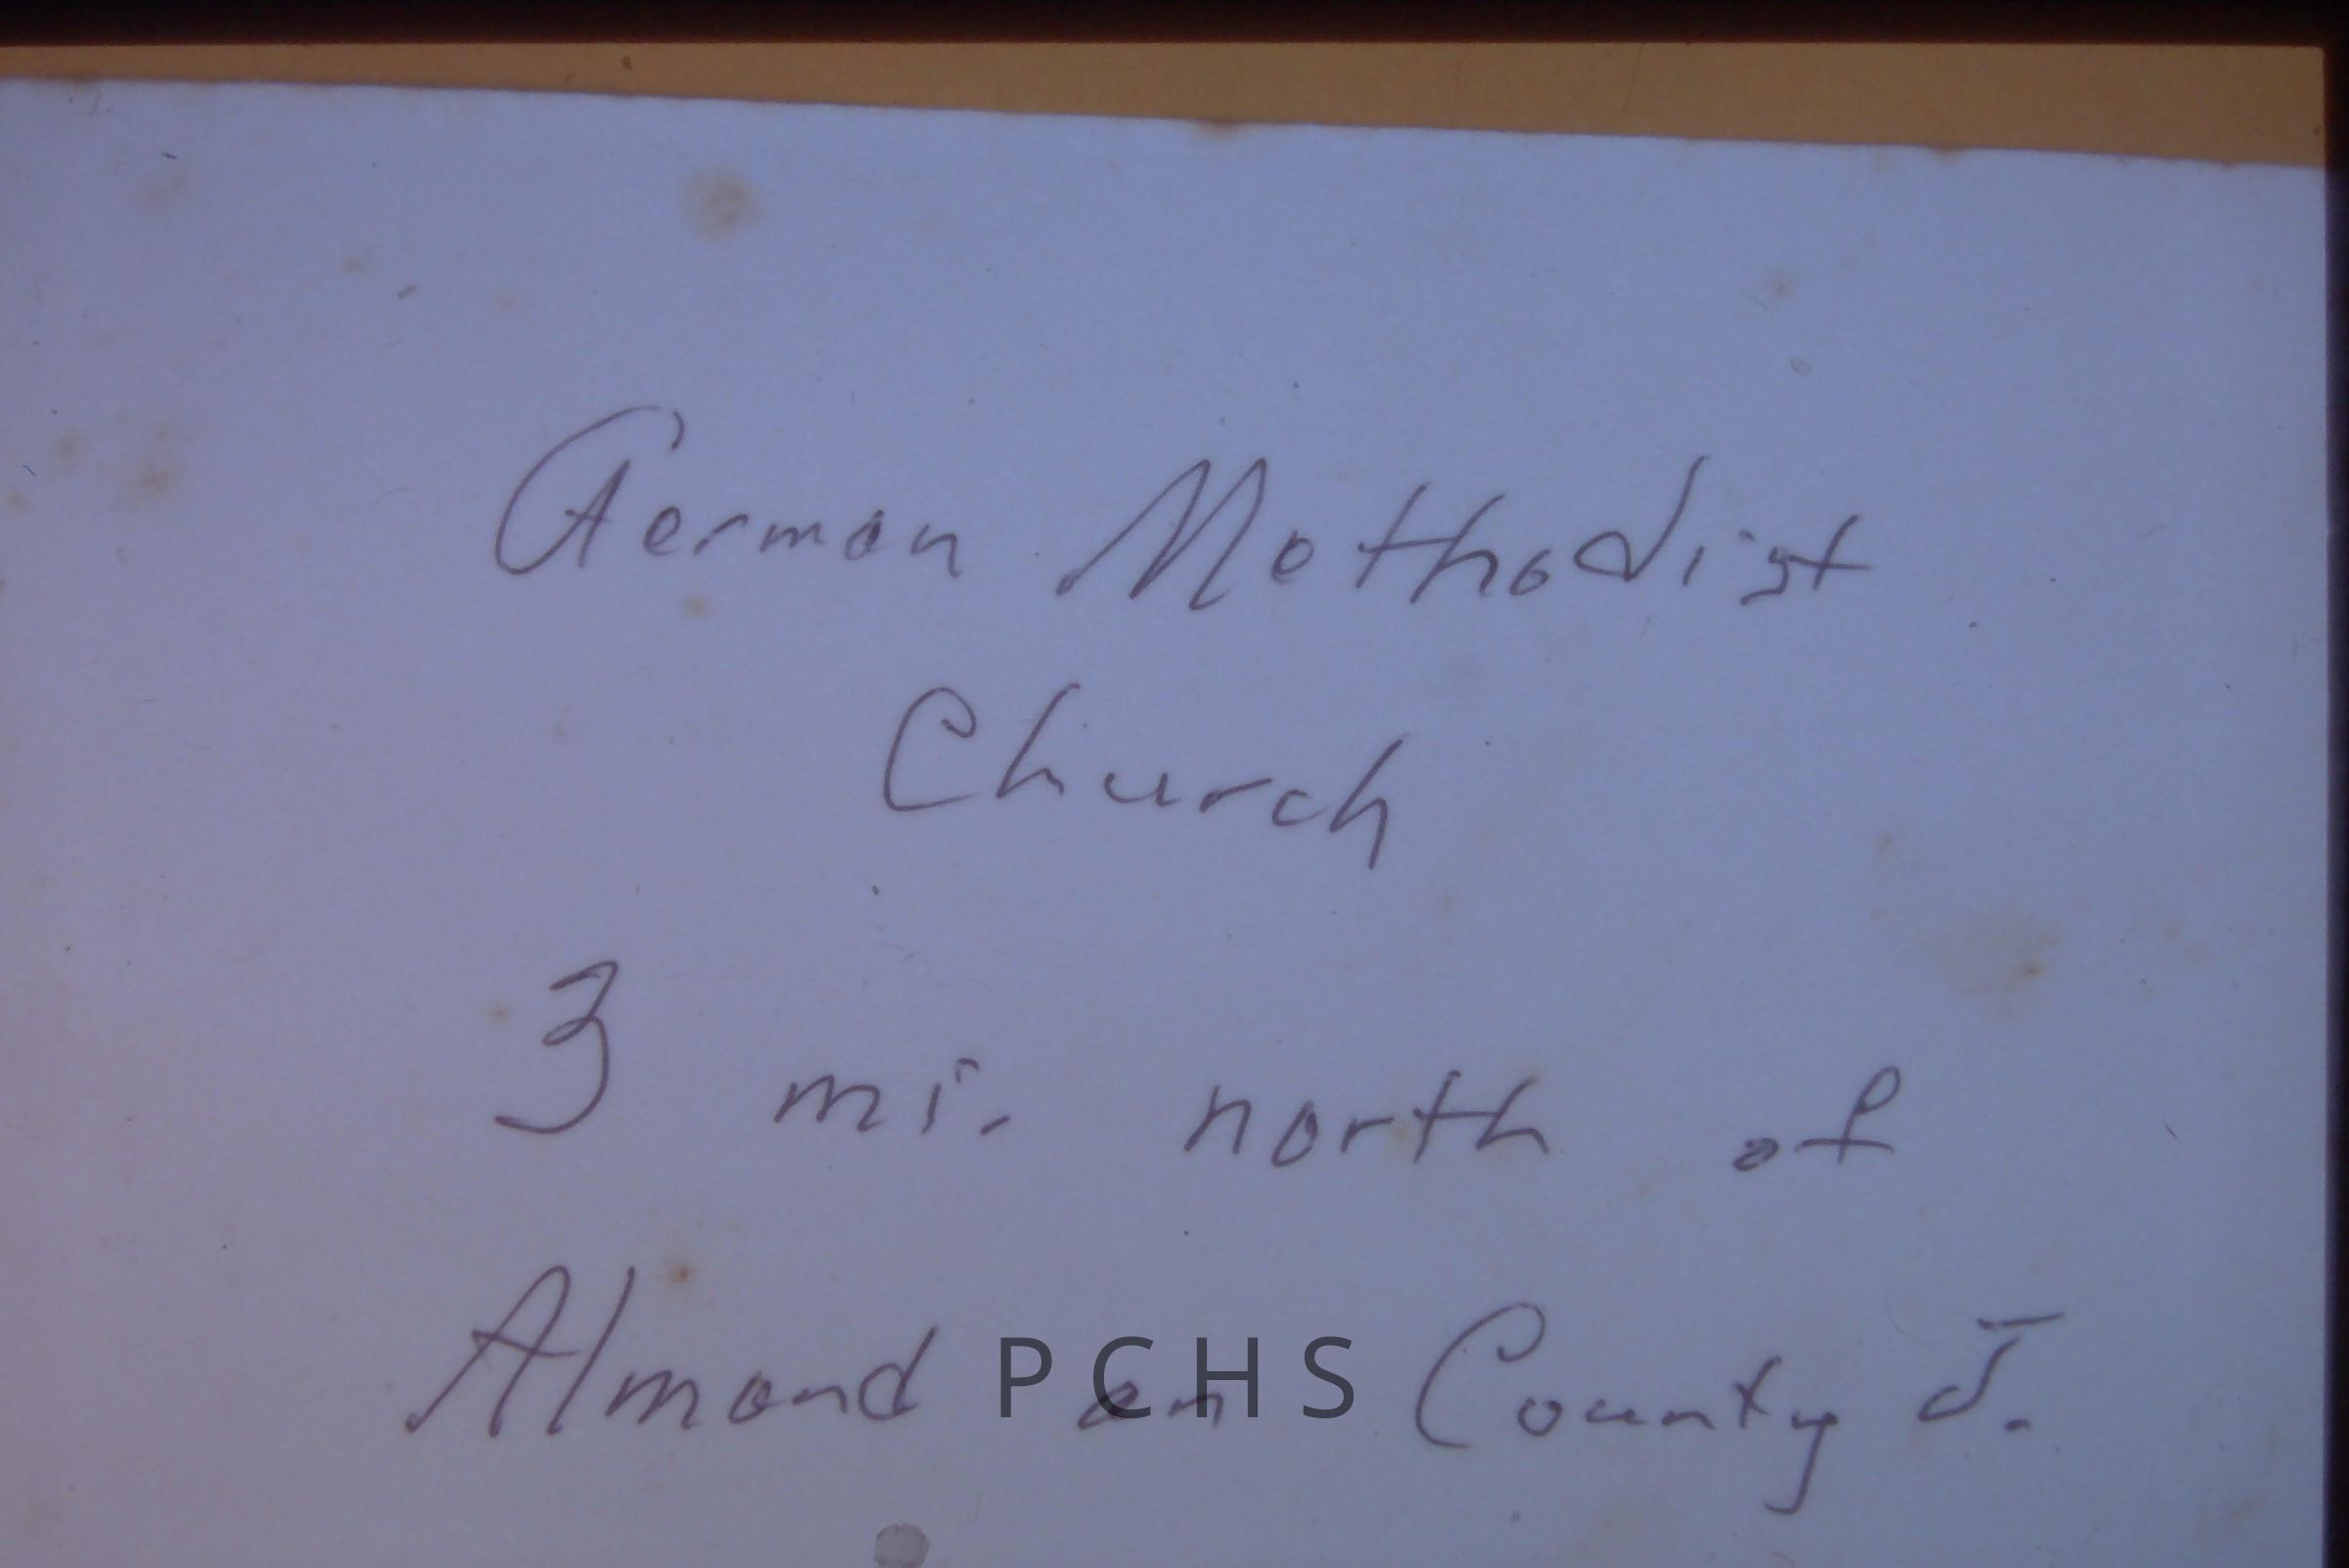 German Methodist
Church
3 mi. north of
Almond on County J.
PCHS